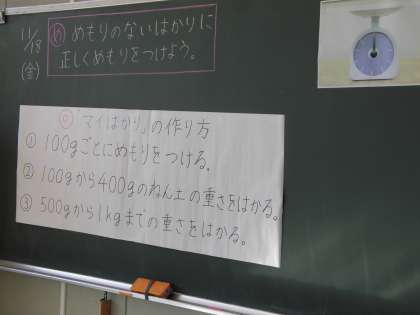 11/18
(金)
め めもりのないはかりに
正しくめもりをつけよう。
◎「マイはかり」の作り方
① 100gごとにめもりをつける。
② 100gから400gのねん土の重さをはかる。
③ 500gから1kgまでの重さをはかる。